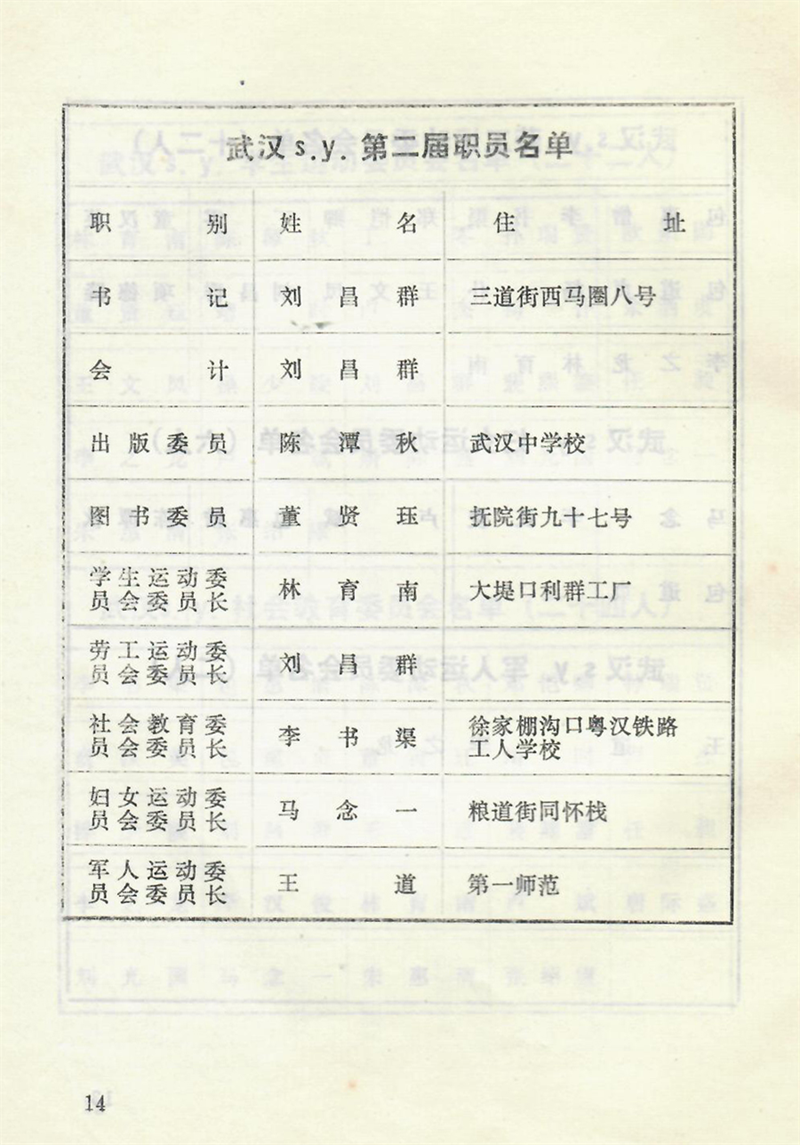 武汉s.y.第二届职员名单
职别 姓名 住址
书记 刘昌群 三道街西马圈八号
会计 刘昌群
出版委员 陈潭秋 武汉中学校
图书委员 董贤珏 抚院街九十七号
学生运动委
员会委员长 林育南 大堤口利群工厂
劳工运动委
员会委员长 刘昌群
社会教育委
员会委员长 李书渠 徐家棚沟口粤汉铁路
工人学校
妇女运动委
员会委员长 马念一 粮道街同怀栈
军人运动委
员会委员长 王道 第一师范
14